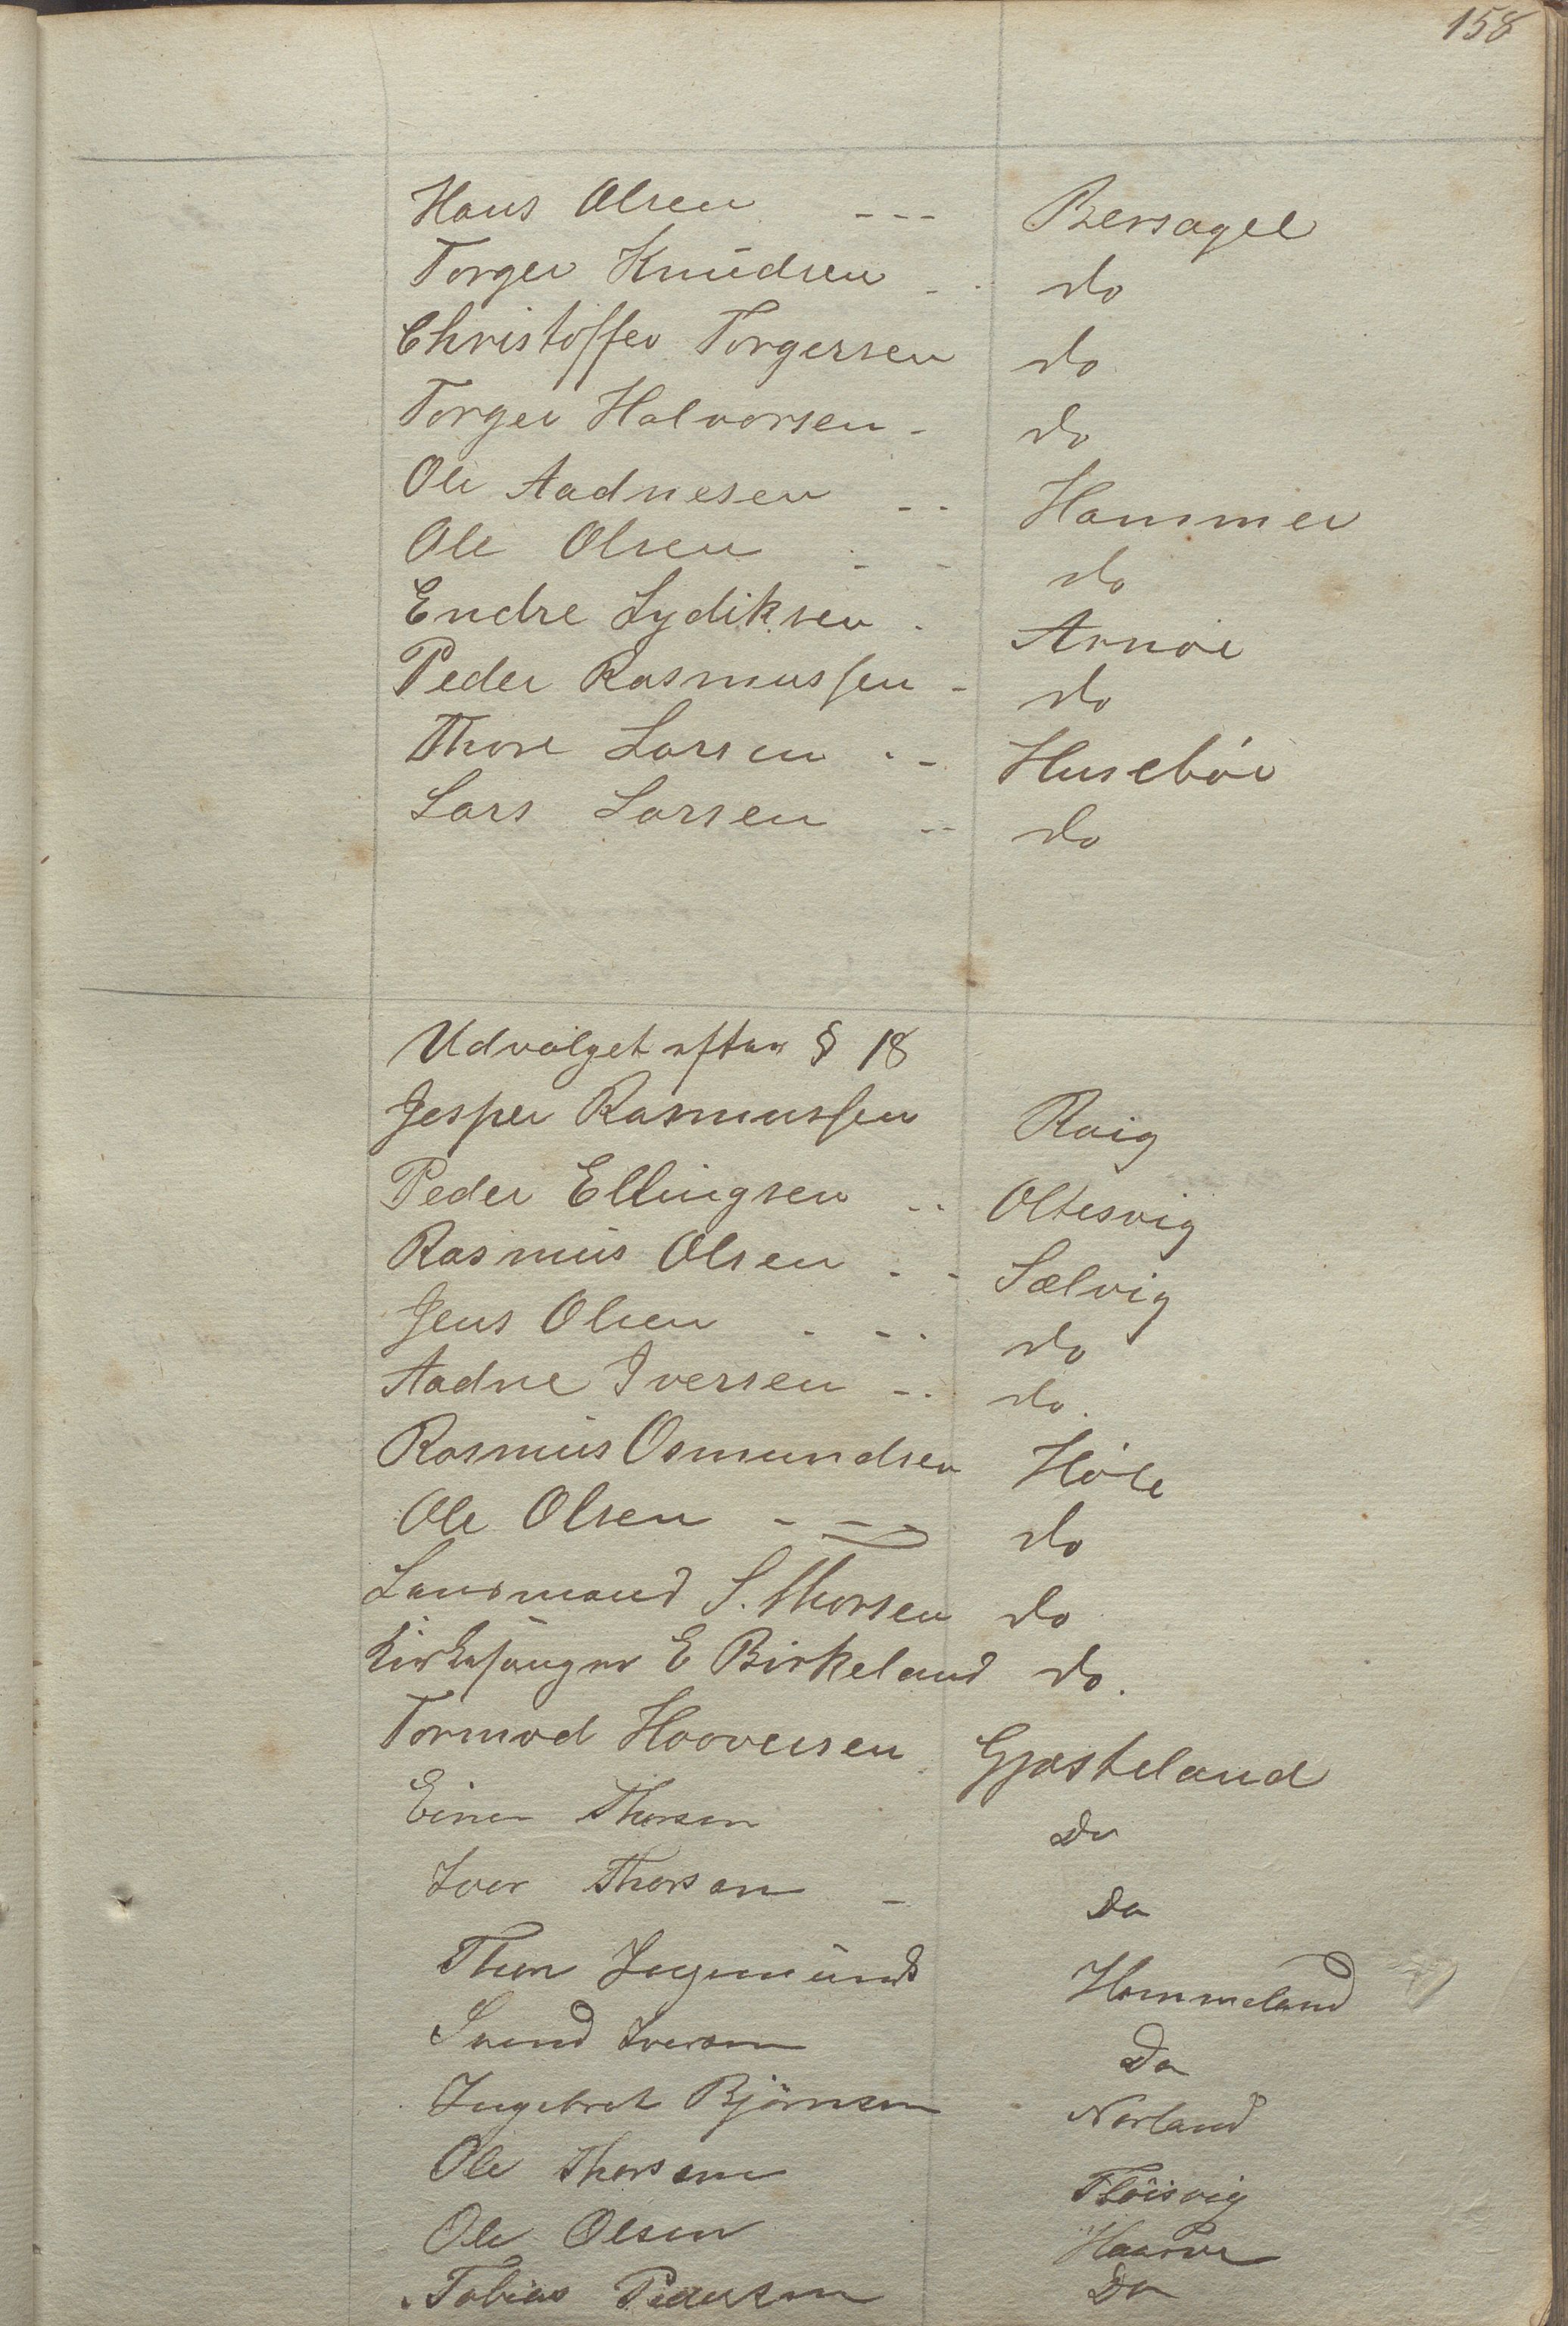 158
Hans Olsen --- Bersagel
Torger Knudsen - - do
Christoffer Torgersen do
Torger Halvorsen - do
Ole Aadnesen -- Hammer
Ole Olsen - - do
Endre Lydiksen - Arnøe
Peder Rasmussen - do
Thore Larsen -- Husebøe
Lars Larsen -- do
Udvalget efter § 18
Jesper Rasmussen Roig
Peder Ellingsen -- Oltesvig
Rasmus Olsen - - Sælvig
Jens Olsen - -- do
Aadne Iversen -- do.
Rasmus Osmundsen Høle
Ole Olsen --- do
Lensmand S. Thorsen do
Kirkesanger E Birkeland do.
Tormod Haaversen Gjøsteland
Einar Thorsen Do
Iver Thorsen - Do
Thore Ingemunds Hommeland
Svend Iversen Do
Ingebret Bjørnsen Norland
Ole Thorsen Fløisvig
Ole Olsen
Tobias Pedersen Do